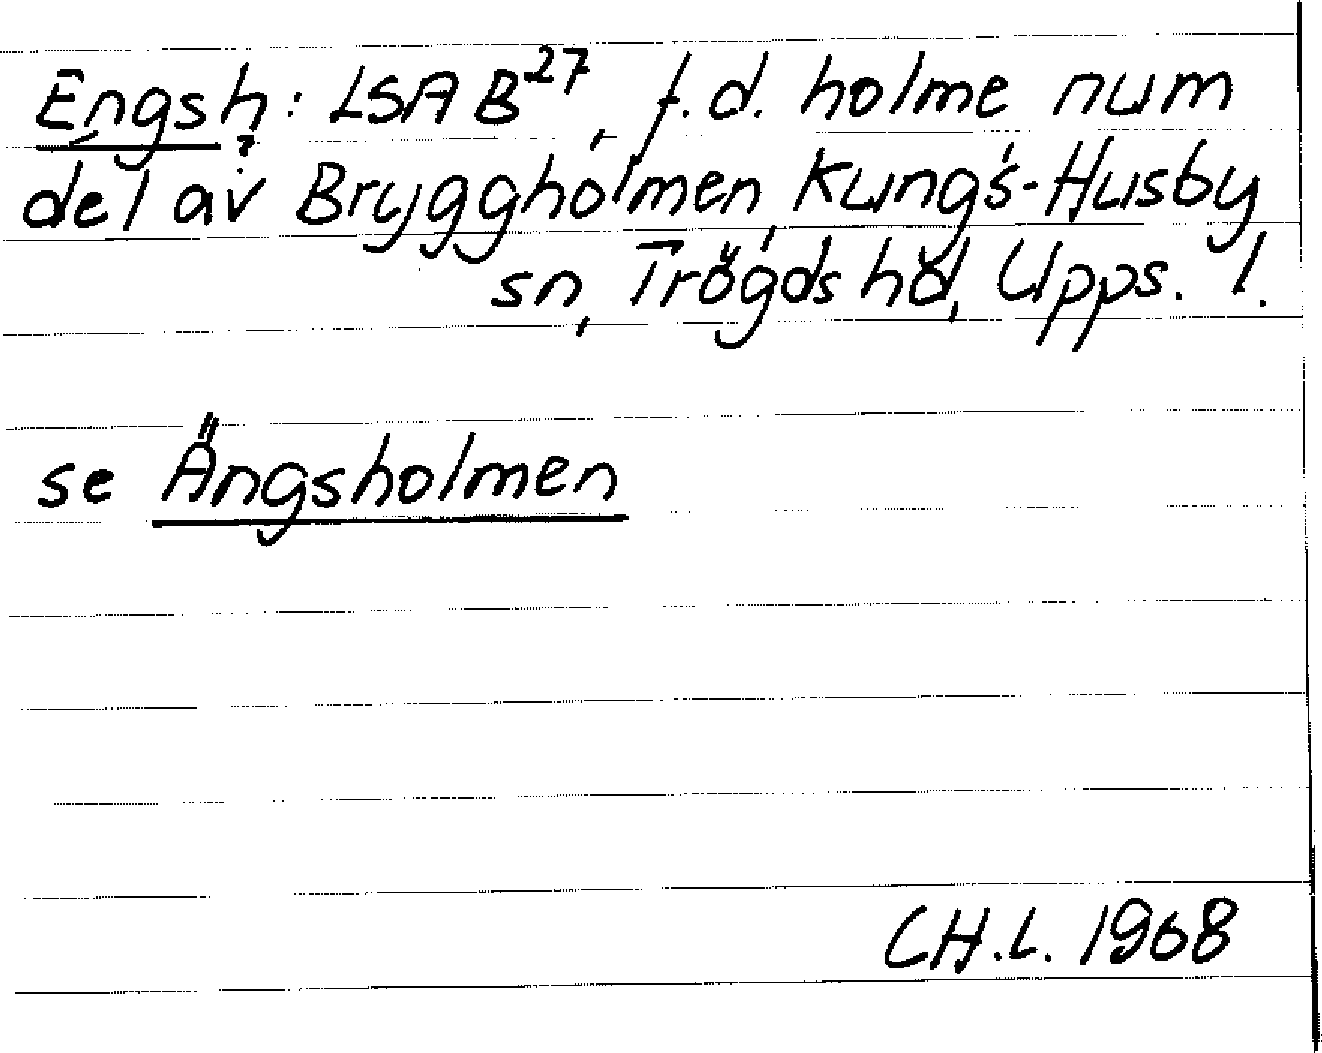 Engsh: LSA B27, f.d. holme num
del av Bryggholmen, Kungs-Husby
sn, Trögds hd, Upps. l.
se Ängsholmen
CH.L. 1968